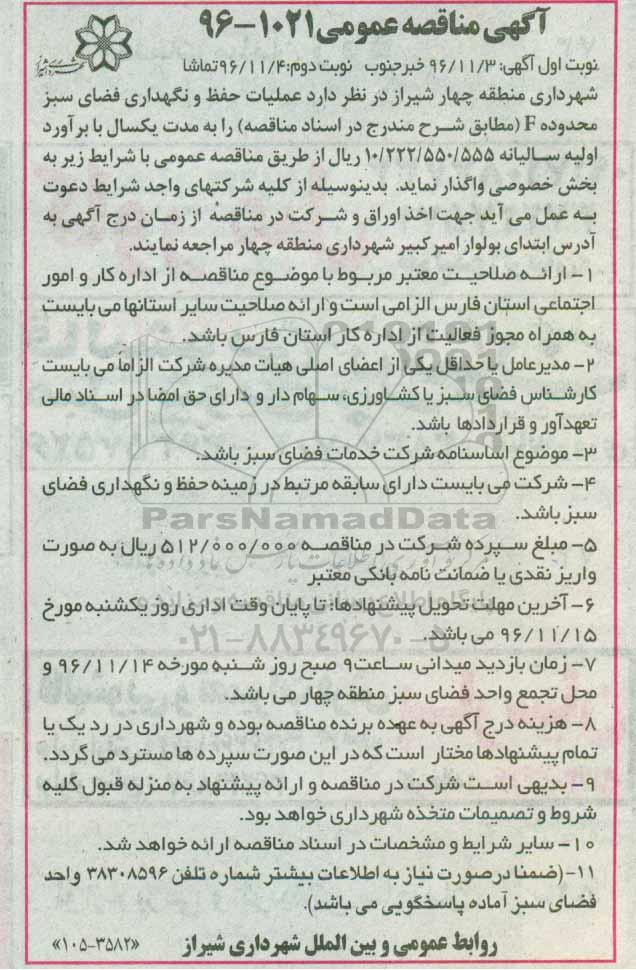 آگهی مناقصه عمومی ۱۰۲۱-۹۶
نوبت اول آگهی: ۹۶/۱۱/۳ خبرجنوب نوبت دوم: ۹۶/۱۱/۴ تماشا
شهرداری منطقه چهار شیراز در نظر دارد عملیات حفظ و نگهداری فضای سبز
محدوده F (مطابق شرح مندرج در اسناد مناقصه) را به مدت یکسال با برآورد
اولیه سالیانه ۱۰/۲۲۲/۵۵۰/۵۵۵ ریال از طریق مناقصه عمومی با شرایط زیر به
بخش خصوصی واگذار نماید. بدینوسیله از کلیه شرکتهای واجد شرایط دعوت
به عمل می آید جهت اخذ اوراق و شرکت در مناقصه از زمان درج آگهی به
آدرس ابتدای بولوار امیرکبیر شهرداری منطقه چهار مراجعه نمایند.
۱- ارائه صلاحیت معتبر مربوط با موضوع مناقصه از اداره کار و امور
اجتماعی استان فارس الزامی است و ارائه صلاحیت سایر استانها می بایست
به همراه مجوز فعالیت از اداره کار استان فارس باشد.
۲- مدیرعامل یا حداقل یکی از اعضای اصلی هیأت مدیره شرکت الزاماً می بایست
کارشناس فضای سبز یا کشاورزی، سهام دار و دارای حق امضا در اسناد مالی
تعهدآور و قراردادها باشد.
۳- موضوع اساسنامه شرکت خدمات فضای سبز باشد.
۴- شرکت می بایست دارای سابقه مرتبط در زمینه حفظ و نگهداری فضای
سبز باشد.
ParsNamadData
۵- مبلغ سپرده شرکت در مناقصه ۵۱۲/۰۰۰/۰۰۰ ریال به صورت
واریز نقدی یا ضمانت نامه بانکی معتبر
۶- آخرین مهلت تحویل پیشنهادها: تا پایان وقت اداری روز یکشنبه مورخ
۹۶/۱۱/۱۵ می باشد.
۰۲۱-۸۸۳۴۹۶۷۰-۵
۷- زمان بازدید میدانی ساعت ۹ صبح روز شنبه مورخه ۹۶/۱۱/۱۴ و
محل تجمع واحد فضای سبز منطقه چهار می باشد.
۸- هزینه درج آگهی به عهده برنده مناقصه بوده و شهرداری در رد یک یا
تمام پیشنهادها مختار است که در این صورت سپرده ها مسترد می گردد.
۹- بدیهی است شرکت در مناقصه و ارائه پیشنهاد به منزله قبول کلیه
شروط و تصمیمات متخذه شهرداری خواهد بود.
۱۰- سایر شرایط و مشخصات در اسناد مناقصه ارائه خواهد شد.
۱۱- (ضمنا درصورت نیاز به اطلاعات بیشتر شماره تلفن ۳۸۳۰۸۵۹۶ واحد
فضای سبز آماده پاسخگویی می باشد).
روابط عمومی و بین الملل شهرداری شیراز «۱۰۵-۳۵۸۲»